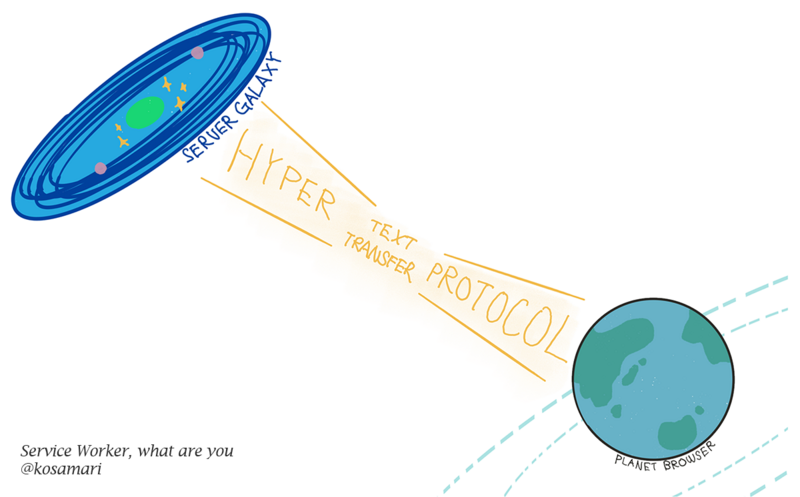 SERVER GALAXY
HYPER
TEXT
TRANSFER
PROTOCOL
PLANET BROWSER
Service Worker, what are you
@kosamari